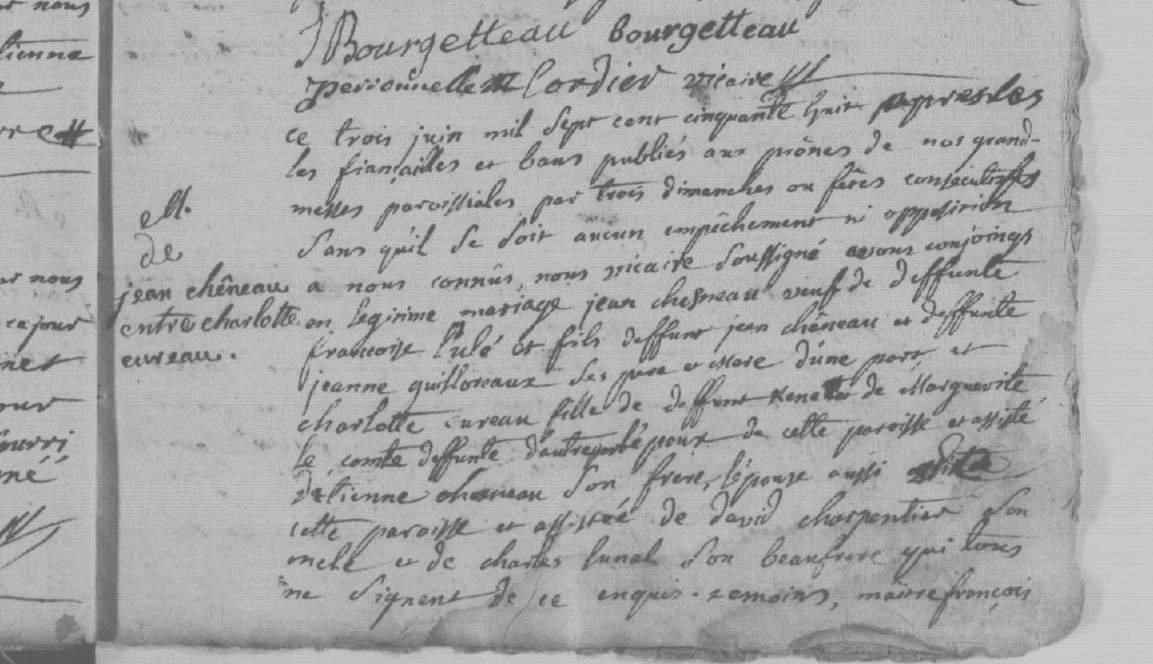 Bourgetteau bourgetteau
perronnelle Cordier vicaire
ce trois juin mil sept cent cinquante huit apres les
les fiançailles et bans publiés aux prônes de nos grand-
messes paroissiales par trois dimanches ou fêtes consecutifs
sans qu'il se soit aucun empêchement ni opposition
a nous connûs, nous vicaire soussigné avons conjoings
en legitime mariage jean chesneau veuf de deffunte
francoise et fils deffunt jean chêneau et deffunte
jeanne guilloteaux ses pere et mere d'une part, et
charlotte eureau fille de deffunt rené et de Marguerite
le comte deffunte d'autre part l'époux de cette paroisse et assisté
d'etienne cheneau son frere, l'épouse aussi de
cette paroisse et assistée de david charpentier son
et de charles lunel son beaufrere qui tous
ne signent de ce enquis. temoins, maitre françois
M.
de
jean chêneau
entre charlotte
eureau.
nous
tienne
nous
ce jour